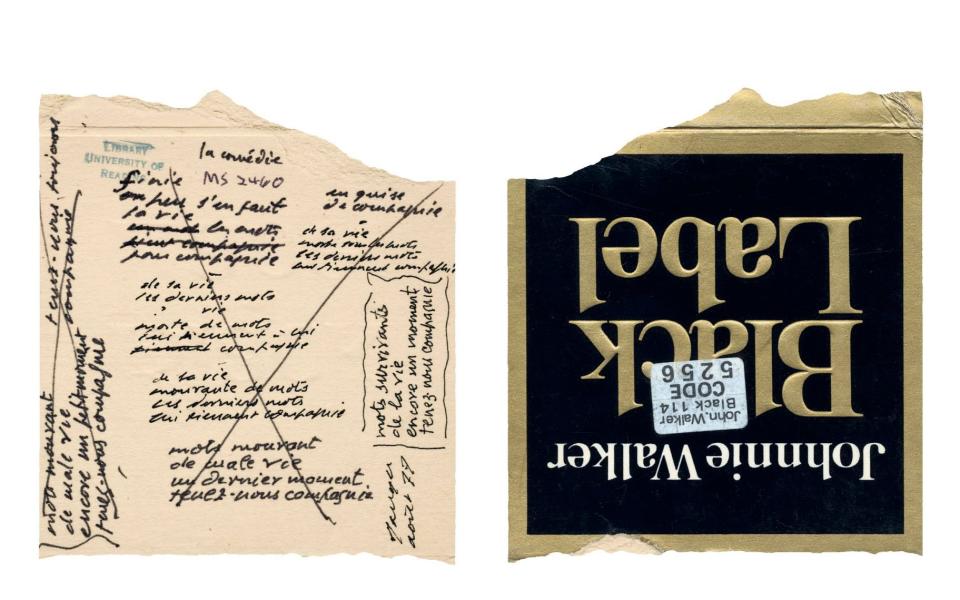 LIBRARY
UNIVERSITY OF
la comédie
MS 2460
finie
peu s'en faut
la vie
les mots
pour compagnie
en guise
de compagnie
de sa vie
les derniers mots
lui tiennent compagnie
de sa vie
les derniers mots
vie
morte de mots
compagnie
de sa vie
mourante de mots
les derniers mots
lui tiennent compagnie
mots mourant
de male vie
un dernier moment
tenez-nous compagnie
mots survivants
de la vie
encore un moment
tenez-nous compagnie
Tanger
août 77
mots mourant
de male vie
encore un petit moment
tenez-nous compagnie
tenez-nous toujours
compagnie
Johnnie Walker
Black
Label
John.Walker
Black 114
CODE
5256